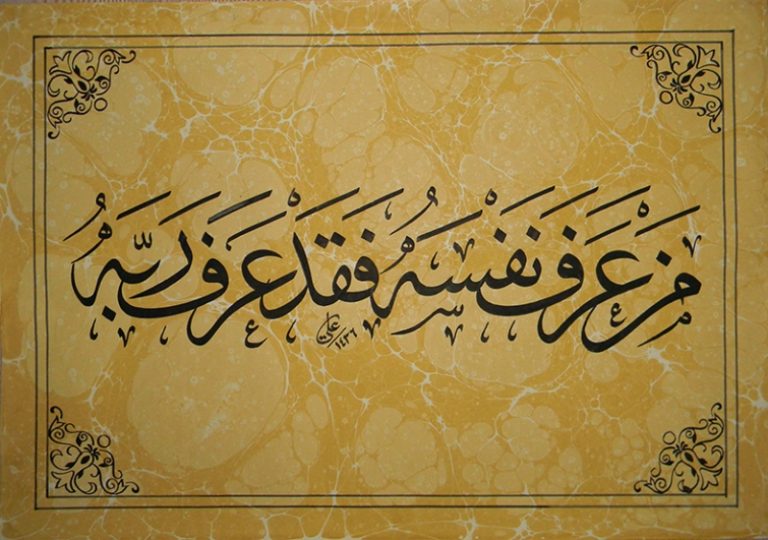 مَنْ عَرَفَ نَفْسَهُ فَقَدْ عَرَفَ رَبَّهُ
علي ١٤٣٦